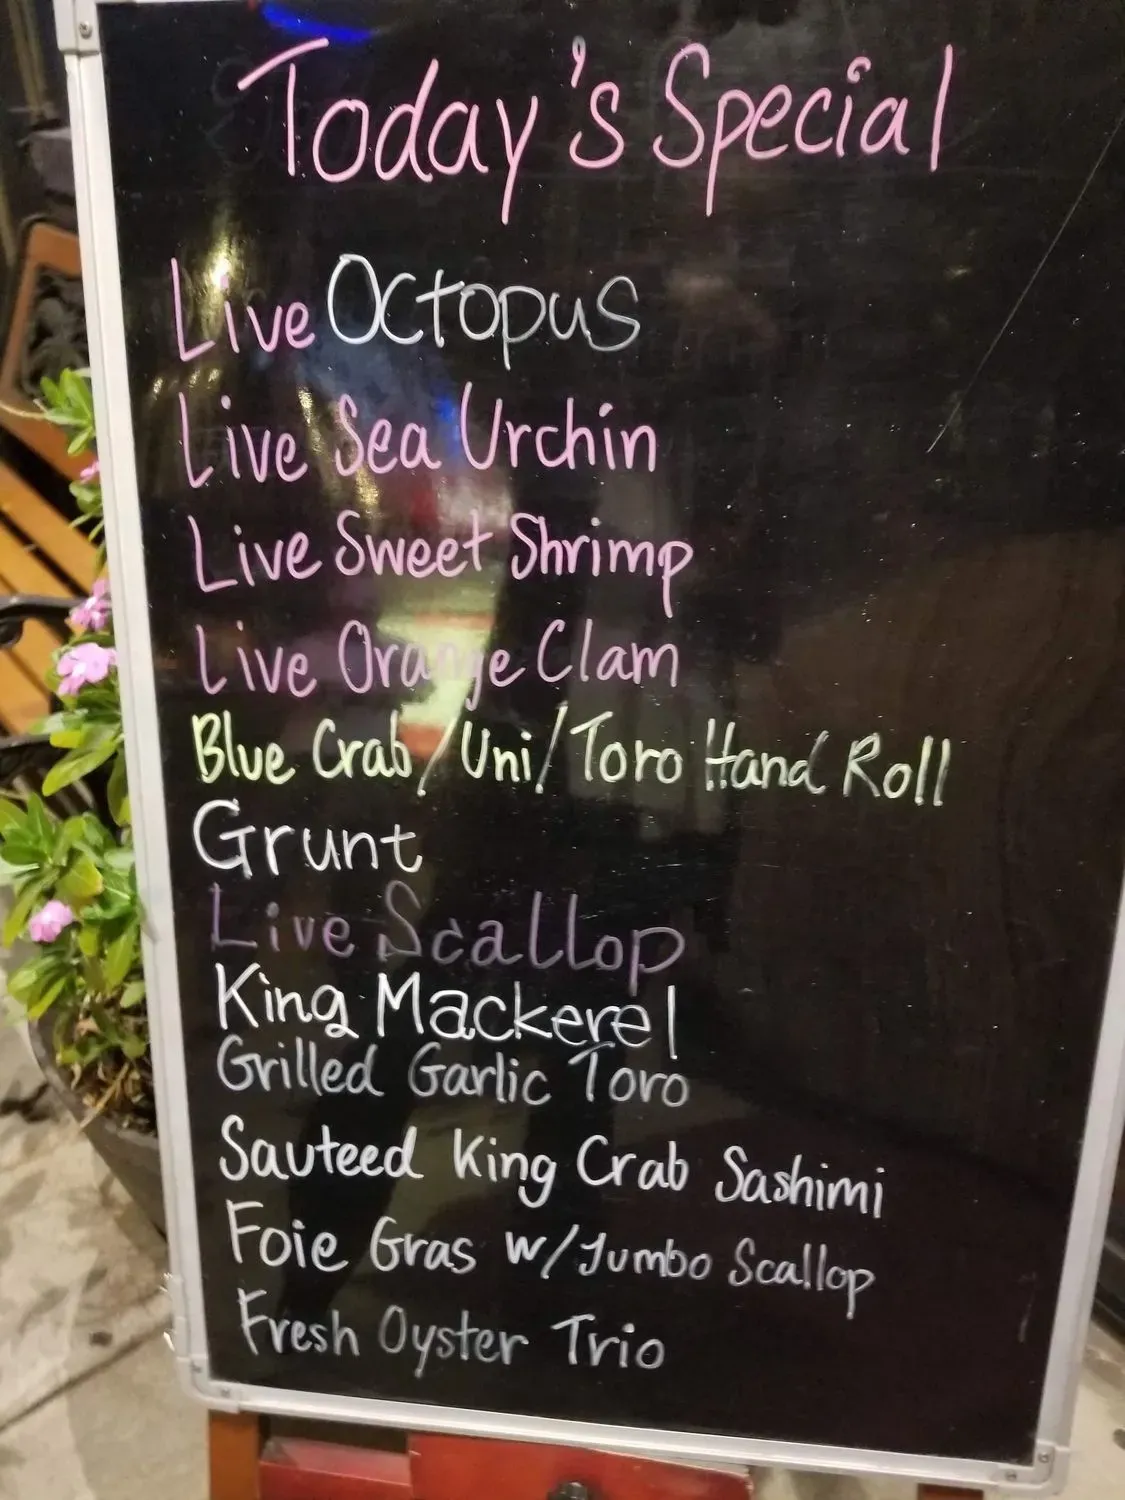 Today's Special
Live Octopus
Live Sea Urchin
Live Sweet Shrimp
Live Orange Clam
Blue Crab/Uni/Toro Hand Roll
Grunt
Live Scallop
King Mackerel
Grilled Garlic Toro
Sauteed King Crab Sashimi
Foie Gras w/Jumbo Scallop
Fresh Oyster Trio